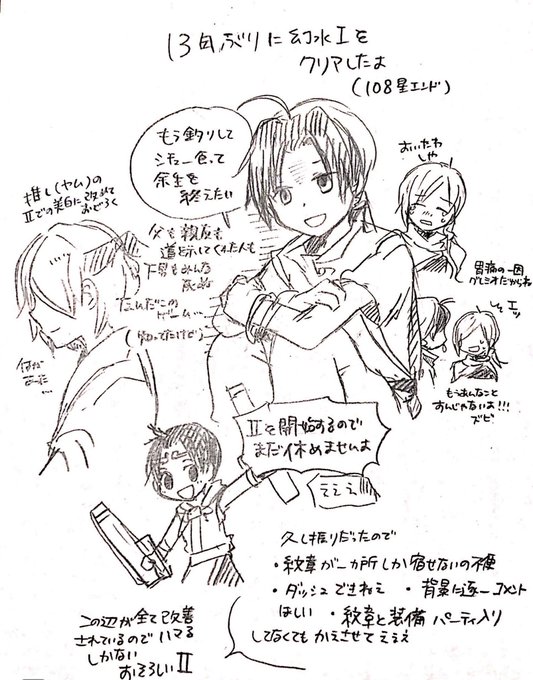 13日ぶりに幻水Ⅰを
クリアしたよ
(108星エンド)
もう釣りして
シチュー食って
余生を
終えたい
おいたわ
しや
推し(ヤム)の
Ⅱでの美白に改めて
おどろく
父も親友も
道を示してくれた人も
下男もみんな
死ぬ
なんだこの
ゲーム…
知ってたけど
何が
あった
…
胃痛の一因
グレミオだからね
もうあんなこと
すんじゃないよ!!!
ズビ
Ⅱを開始するので
まだ休めませんよ
えええ
久し振りだったので
・紋章が一ヶ所しか宿せないの不便
・ダッシュできねえ ・背景に逐一コメント
ほしい ・紋章と装備 パーティ入り
してなくても かえさせてえええ
この辺が全て改善
されているのでハマる
しかない
おそろしいⅡ